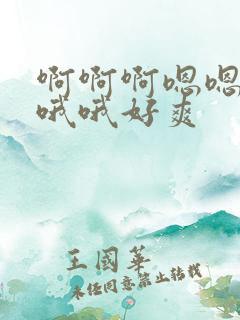 啊啊啊嗯嗯
哦哦好爽
王國華
未经同意禁止转载